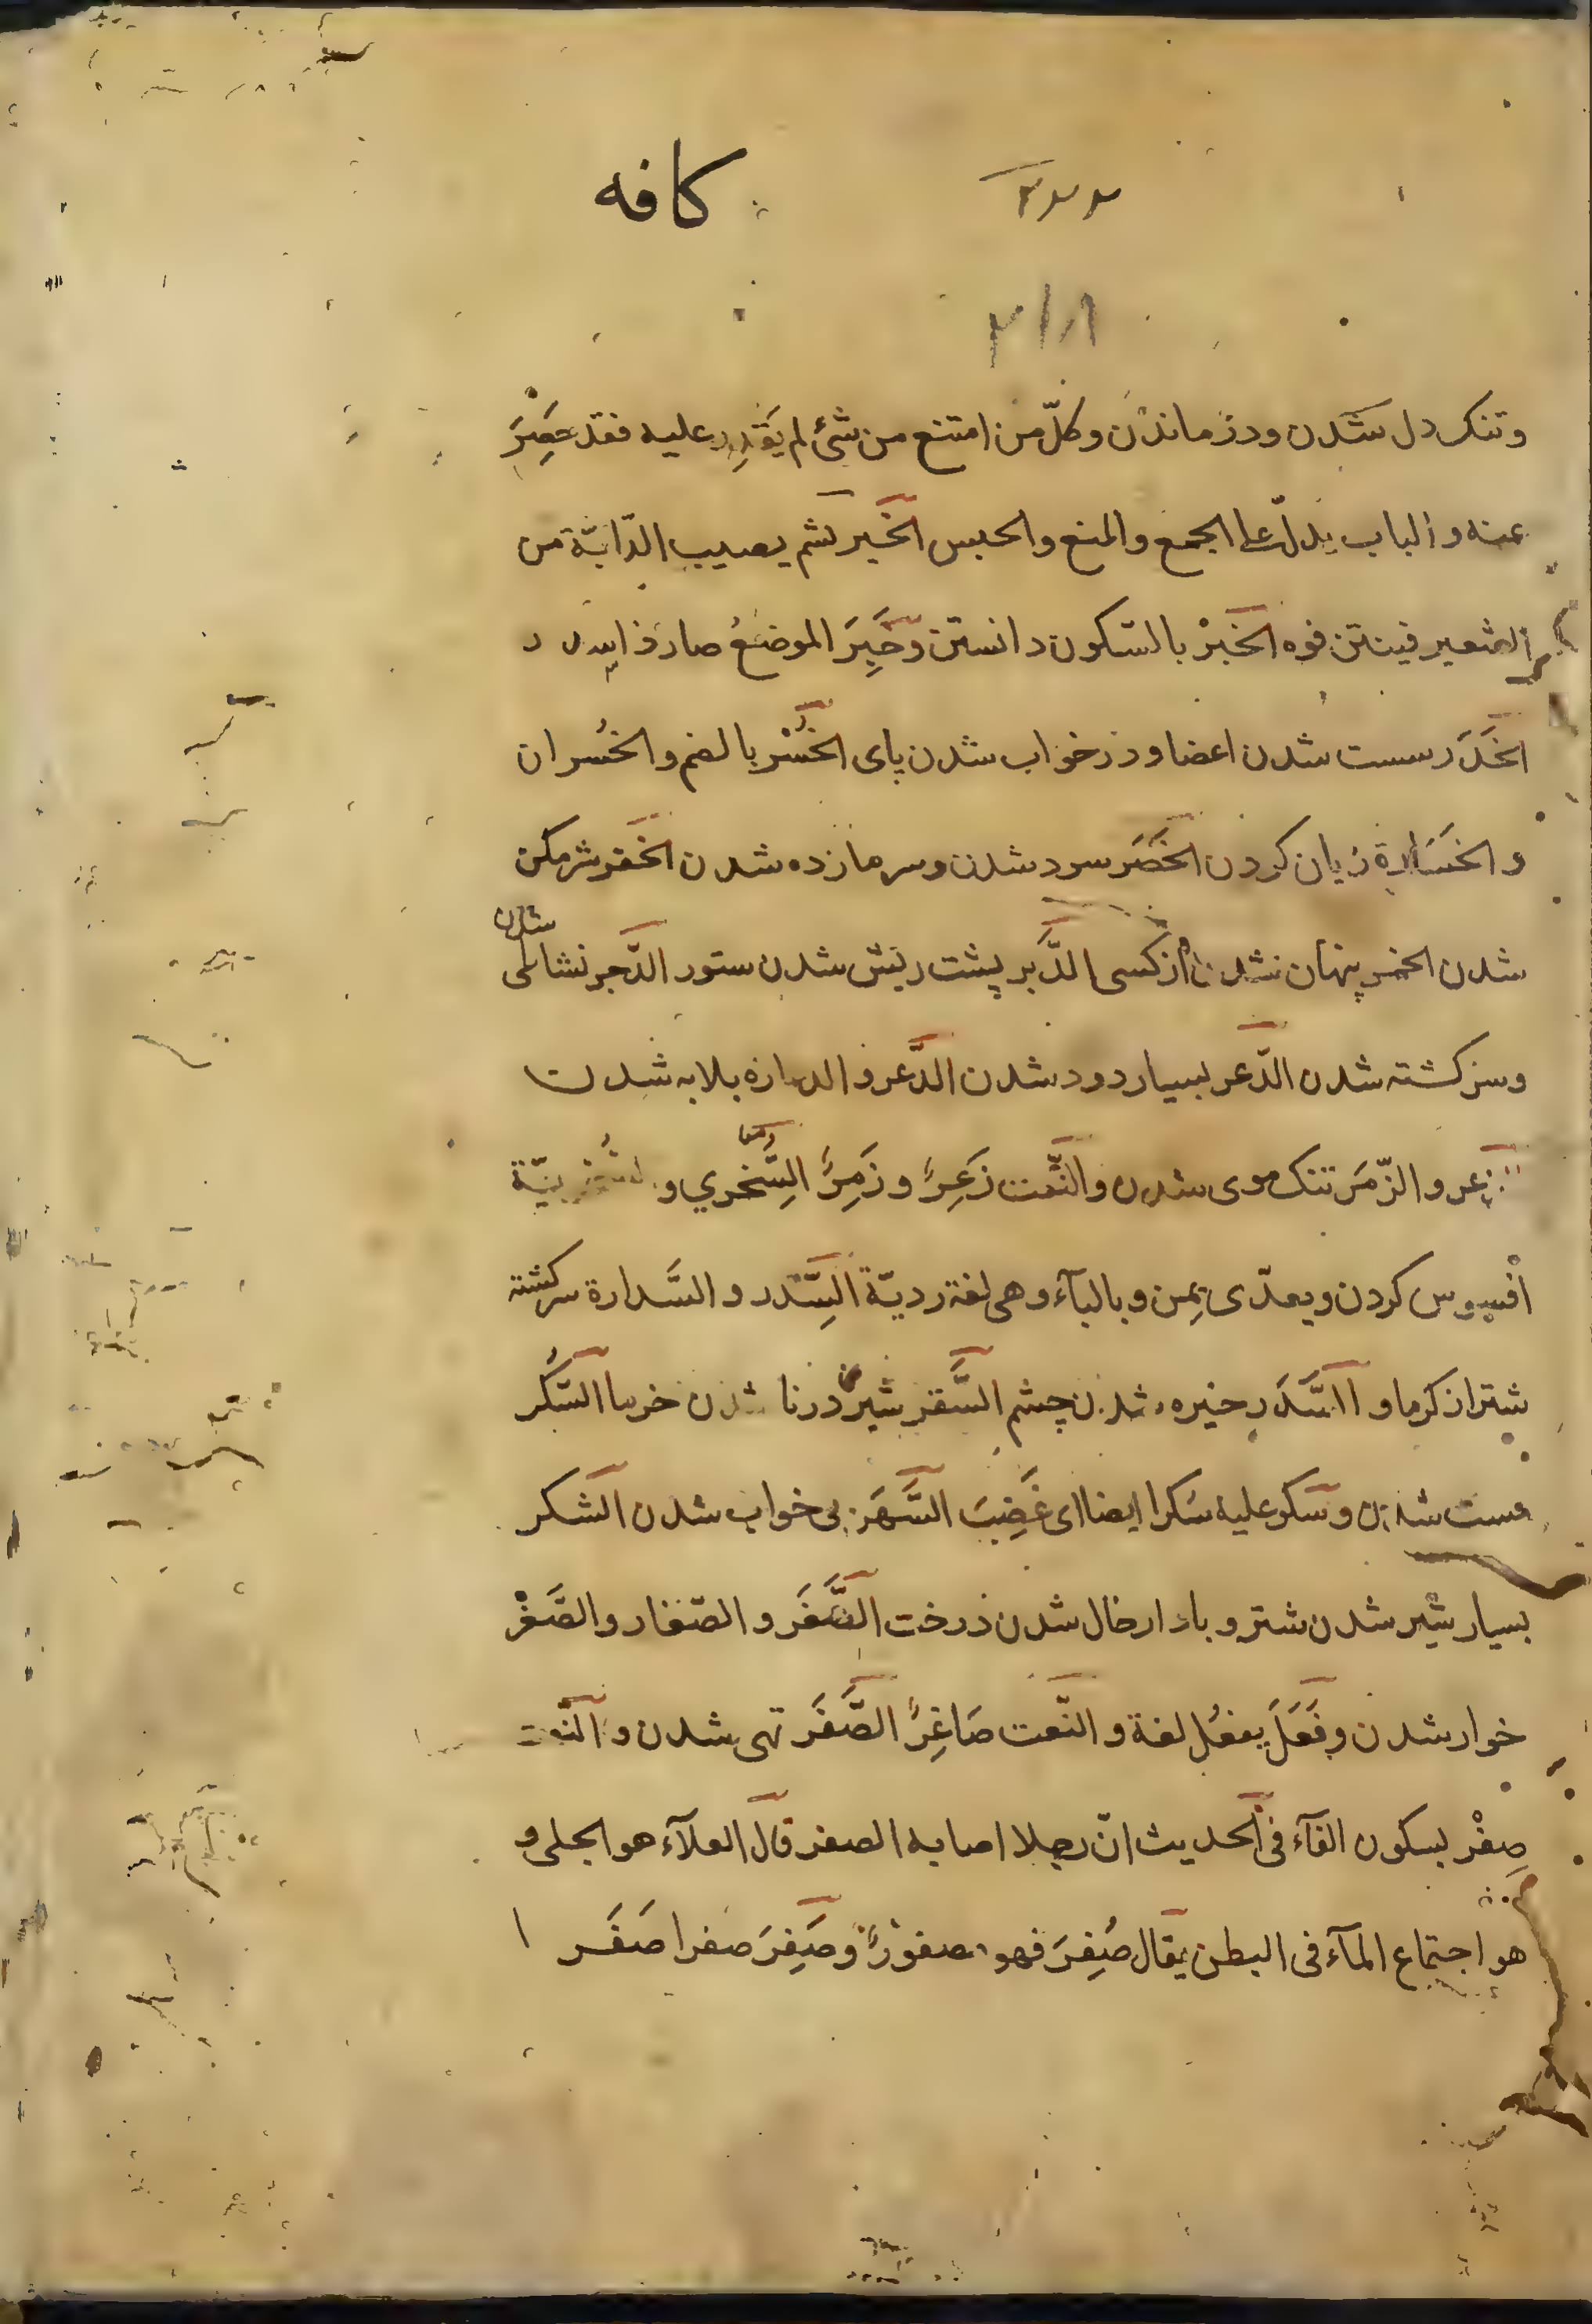 كافه
۲۲۳
وتنك دل شدن ودر ماندن وكلّ من امتنع من شئ لم يَقْدِر عليه فقد حَصِرَ
عنه والباب يدلّ على الجمع والمنع والحبس الخبر كشم يصيب الدّابّة من
الشعير فينتن فوه الخَبرْ بالسّكون دانستن وخَبِرَ الموضعُ صار ذا
الخَدَر سست شدن اعضا ودر خواب شدن پاى الخُسْر بالضم والخُسران
والخَسَارة زيان كردن الخَصَر سرد شدن وسرما زده شدن الخفر شرمكن
شدن الخمر پنهان شدن از كسى الدَّبر پشت ريش شدن ستور الدَّجر نشاطى شدن
وسركشته شدن الدّعر بسيار دود شدن الدَّعر و بلابه شدن
الزعر والزّمَر تنك موى شدن والنّعت زَعِرٌ وزَمِرٌ السِّخري و
افسوس كردن ويعدّى بِمن وبالبآء وهى لغة رديّة السَّدر والسَّدارة سركشته
شتر از كرما و السَّدَر خيره شدن چشم السَّقر شدن خرما السُّكر
مست شدن وسكر عليه سَكرا ايضا اى غَضِبَ السَّهَر بى خواب شدن الشكر
بسيار شير شدن شتر و شدن درخت الصَّغَر والصّغار والصَّغْر
خوار شدن وفَعَلَ يفعُل لغة والنّعت صَاغِرٌ الصَّفَر تهى شدن والنّعت
صِفْر بسكون الفآء فى الحديث انّ رجلا اصابه الصفر قال العلآء هو الحبلى و
هو اجتماع المآء فى البطن يقال صُفِرَ فهو مصفوْرٌ وصَفِرَ صفرا صَفَر